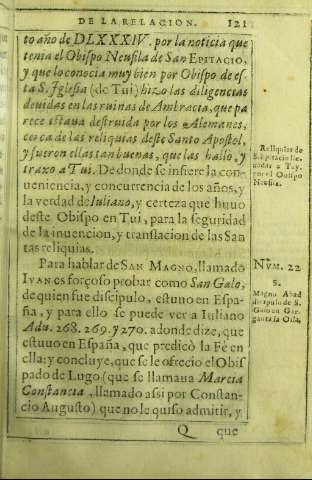 DE LA RELACION. 121
to año de DLXXXIV. por la noticia que
tenia el Obispo Neufila de San EPITACIO,
y que lo conocia muy bien por Obispo de es-
ta S. Iglesia (de Tui) hizo las diligencias
deuidas en las ruinas de Ambracia, que pa
rece estaua destruida por los Alemanes,
cerca de las reliquias deste Santo Apostol,
y fueron ellas tan buenas, que las hallò, y
traxo a Tui. De donde se infiere la con-
ueniencia, y concurrencia de los años, y
la verdad de Iuliano, y certeza que huuo
deste Obispo en Tui, para la seguridad
de la inuencion, y translacion de las San
tas reliquias.
Reliquias de
S. Epitacio lle-
uadas a Tuy,
por el Obispo
Neufila.
Para hablar de SAN MAGNO, llamado
IVAN es forçoso probar como San Galo,
de quien fue discipulo, estuuo en Espa-
ña, y para ello se puede ver a Iuliano
Adu. 268. 269. y 270. adonde dize, que
estuuo en España, que predicò la Fè en
ella; y concluye, que se le ofrecio el Obis
pado de Lugo (que se llamaua Marcia
Constancia, llamado assi por Constan-
cio Augusto) que no le quiso admitir, y
NVM. 22
S.
Magno Abad
discipulo de S.
Galo en Gar-
ganta la Olla.
Q que